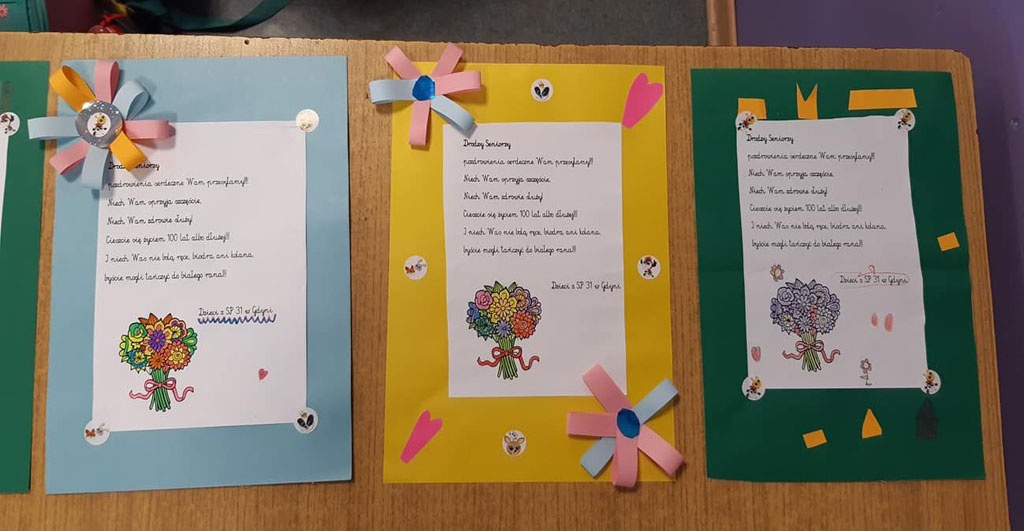 Drodzy Seniorzy
pozdrowienia serdeczne Wam przesyłamy!!!
Niech Wam sprzyja szczęście,
Niech Wam zdrowie służy!
Cieszcie się życiem 100 lat albo dłużej!!!
I niech Was nie bolą ręce, biodra ani kolana,
byście mogli tańczyć do białego rana!!!
Dzieci z SP 31 w Gdyni
Drodzy Seniorzy
pozdrowienia serdeczne Wam przesyłamy!!!
Niech Wam sprzyja szczęście,
Niech Wam zdrowie służy!
Cieszcie się życiem 100 lat albo dłużej!!!
I niech Was nie bolą ręce, biodra ani kolana,
byście mogli tańczyć do białego rana!!!
Dzieci z SP 31 w Gdyni
Drodzy Seniorzy
pozdrowienia serdeczne Wam przesyłamy!!!
Niech Wam sprzyja szczęście,
Niech Wam zdrowie służy!
Cieszcie się życiem 100 lat albo dłużej!!!
I niech Was nie bolą ręce, biodra ani kolana,
byście mogli tańczyć do białego rana!!!
Dzieci z SP 31 w Gdyni